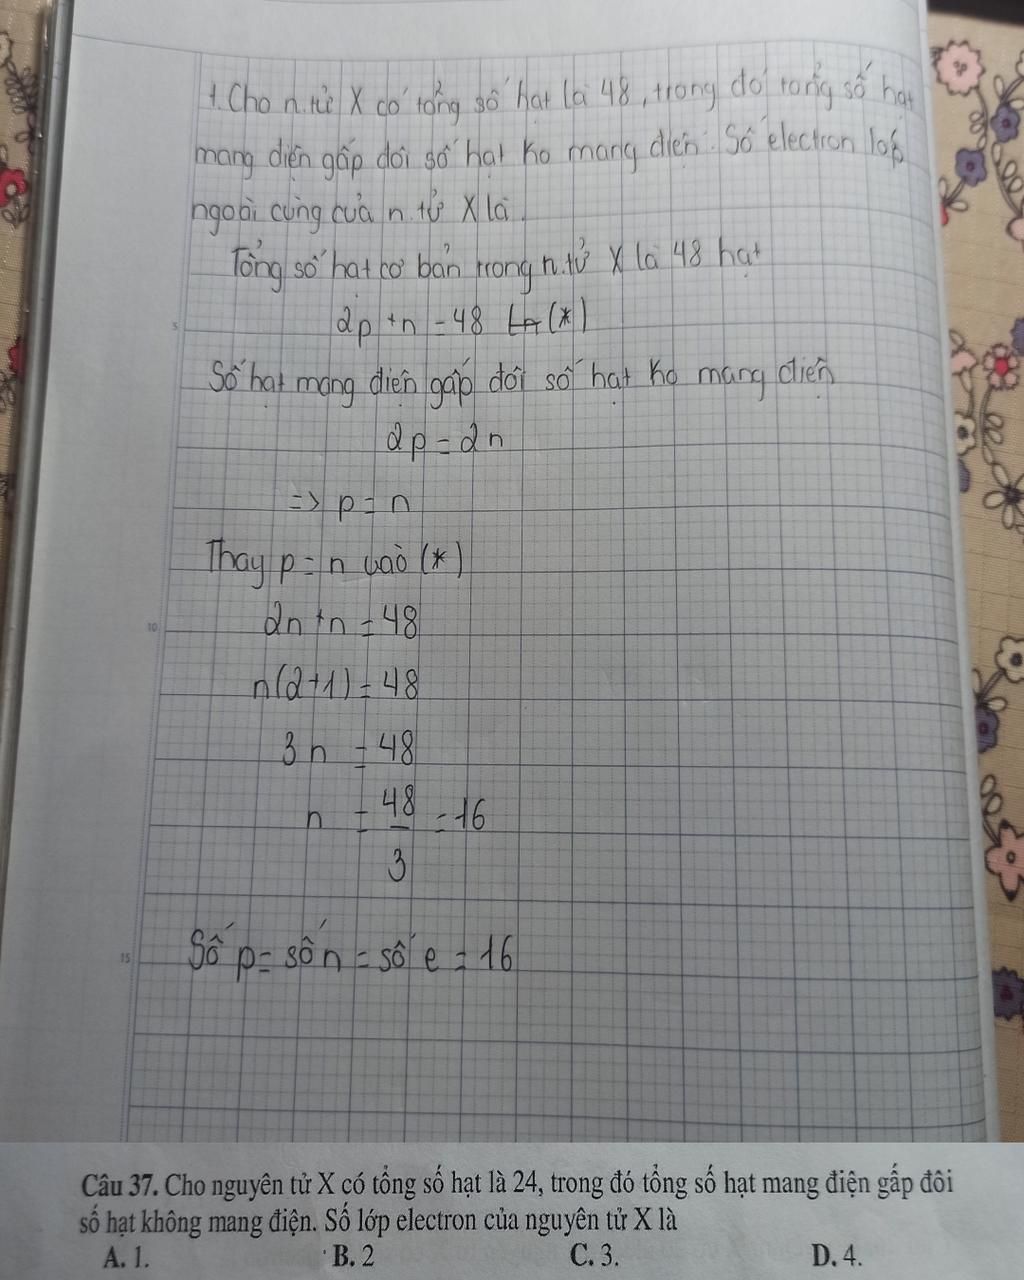 1. Cho n.tử X có tổng số hạt là 48, trong đó tổng số hạt
mang điện gấp đôi số hạt ko mang điện. Số electron lớp
ngoài cùng của n.tử X là.
Tổng số hạt cơ bản trong n.tử X là 48 hạt
2p + n = 48 (*)
Số hạt mang điện gấp đôi số hạt ko mang điện
2p = 2n
=> p = n
5
Thay p = n vào (*)
2n + n = 48
10
n(2+1) = 48
3n = 48
n = 48/3 = 16
Số p = số n = số e = 16
15
Câu 37. Cho nguyên tử X có tổng số hạt là 24, trong đó tổng số hạt mang điện gấp đôi
số hạt không mang điện. Số lớp electron của nguyên tử X là
A. 1. B. 2 C. 3. D. 4.